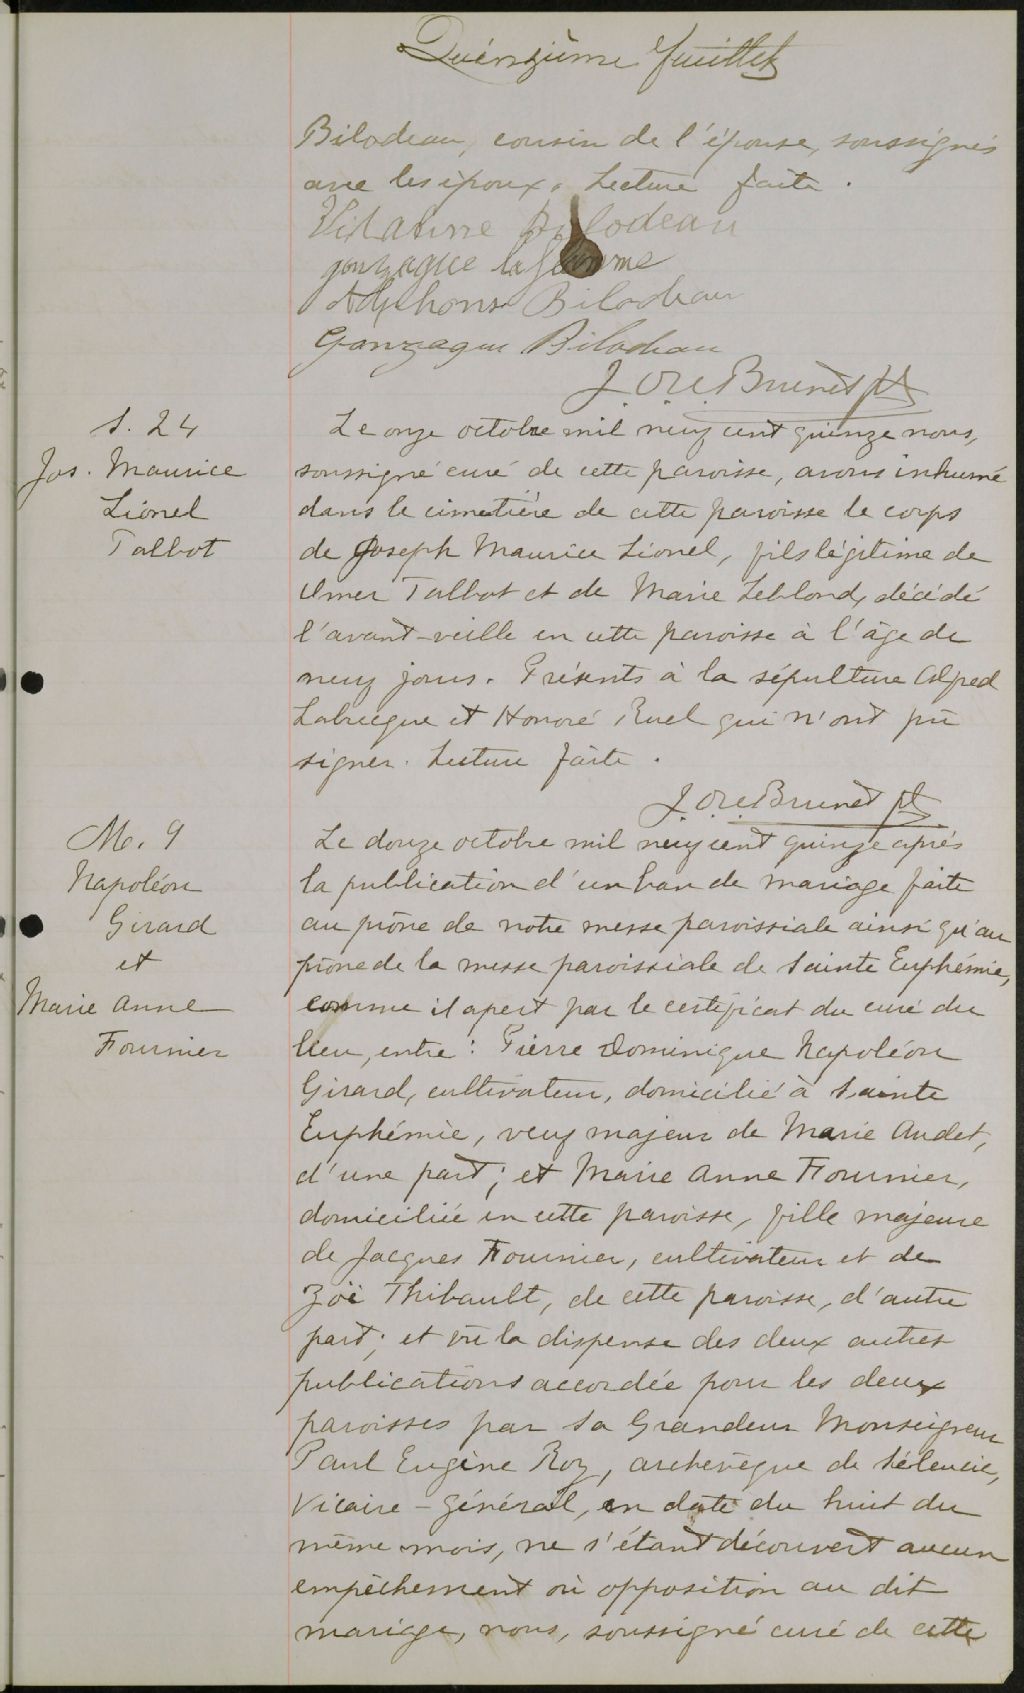 Quinzième feuillet
Bilodeau, cousin de l'épouse, soussignés
avec les époux. Lecture faite.
Bilodeau
gonzague laflamme
Alphonse Bilodeau
Gonzague Bilodeau
J. Brunet ptr
S. 24
Jos. Maurice
Lionel
Talbot
Le onze octobre mil neuf cent quinze nous,
soussigné curé de cette paroisse, avons inhumé
dans le cimetière de cette paroisse le corps
de Joseph Maurice Lionel, fils légitime de
Omer Talbot et de Marie Leblond, décédé
l'avant-veille en cette paroisse à l'âge de
neuf jours. Présents à la sépulture Alfred
Labrecque et Honoré Ruel qui n'ont pû
signer. Lecture faite.
J. Brunet ptr
M. 9
Napoléon
Girard
et
Marie Anne
Fournier
Le douze octobre mil neuf cent quinze après
la publication d'un ban de mariage faite
au prône de notre messe paroissiale ainsi qu'au
prône de la messe paroissiale de Sainte Euphémie,
comme il apert par le certificat du curé du
lieu, entre : Pierre Dominique Napoléon
Girard, cultivateur, domicilié à Sainte
Euphémie, veuf majeur de Marie Audet,
d'une part; et Marie Anne Fournier,
domiciliée en cette paroisse, fille majeure
de Jacques Fournier, cultivateur et de
Zoë Thibault, de cette paroisse, d'autre
part; et vû la dispense des deux autres
publications accordée pour les deux
paroisses par Sa Grandeur Monseigneur
Paul Eugène Roy, archevêque de Séleucie,
Vicaire-Général, en date du huit du
même mois, ne s'étant découvert aucun
empêchement où opposition au dit
mariage, nous, soussigné curé de cette